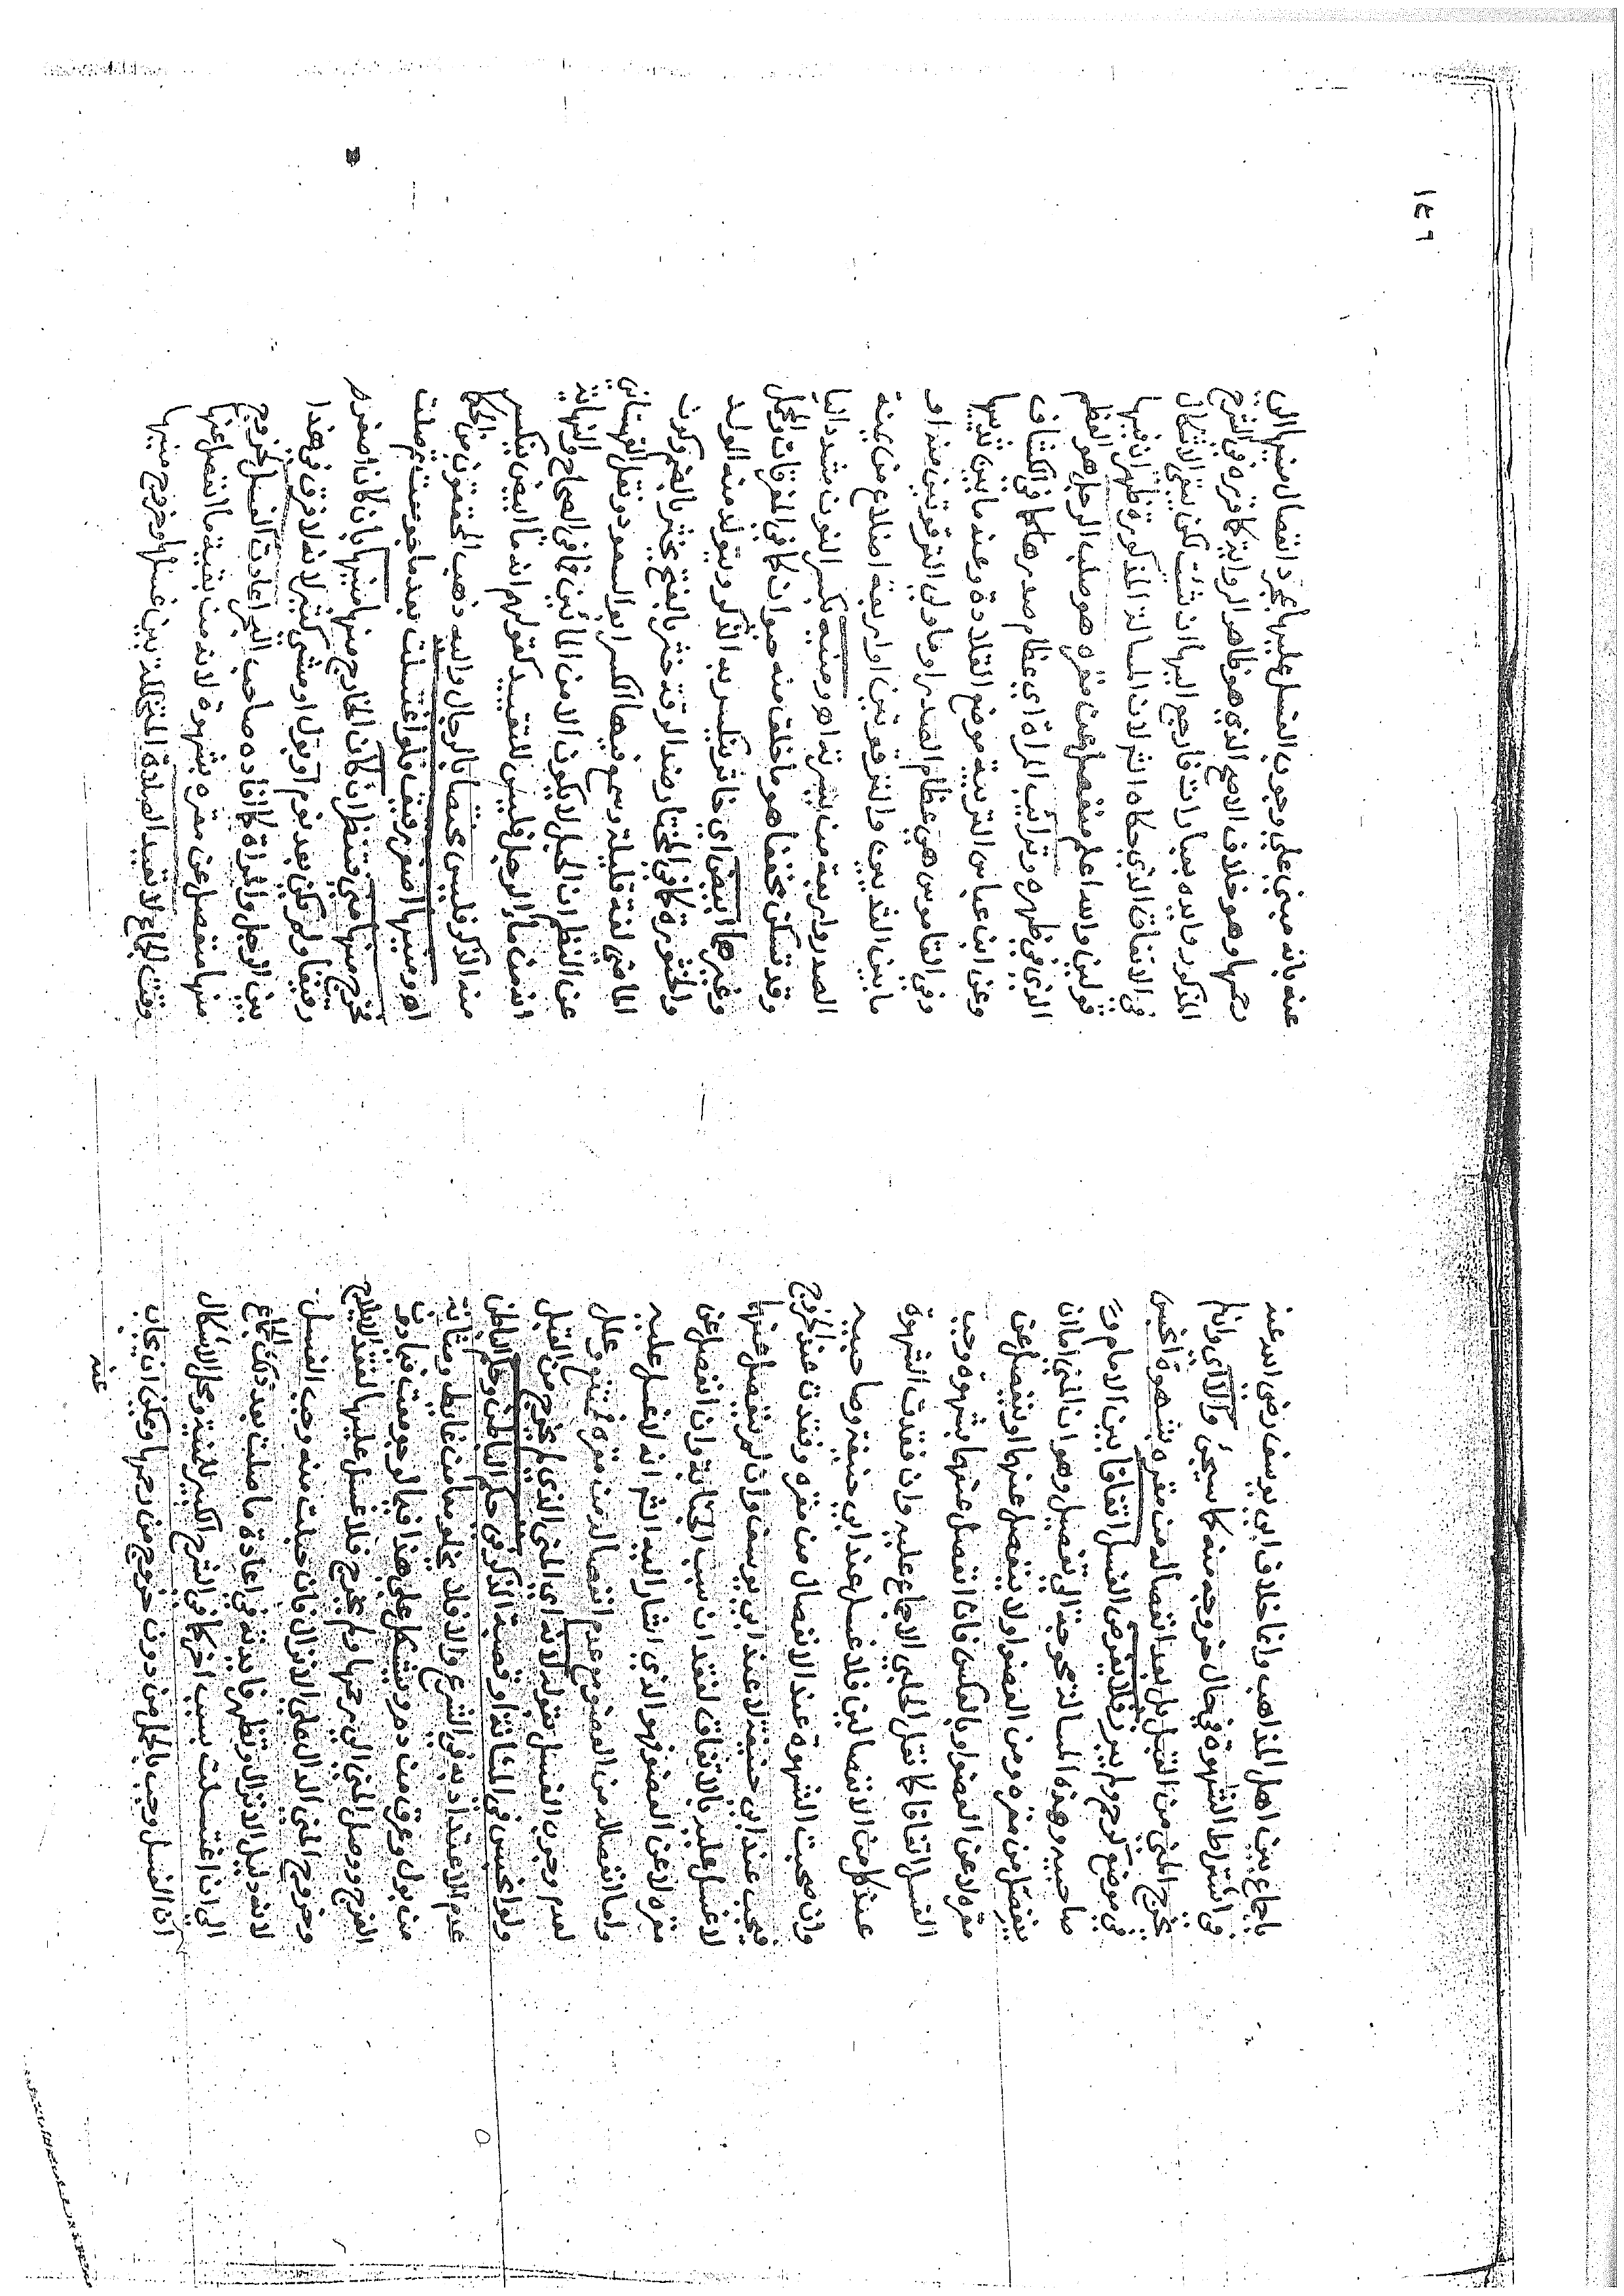 ١٤٩
باجماع بين اهل المذاهب وانما خلاف ابي يوسف رضي الله عنه
في اشتراط الشهوة في حال خروجه منه كما سيجئ والا اي وان لم
يخرج المني من القبل بل بعد انفصاله من مقره بشهوة احتبس
في موضع كوع ولم يبرز فلا يفرض الغسل اتفاقا بين الامام و
صاحبيه وهذه المسالة محوجة الى تفصيل وهو ان المني اما ان
ينفصل من مقره ومن العضو او لا ينفصل عنها او ينفصل عن
مقره لا عن العضو او بالعكس فاذا انفصل عنها بشهوة وجب
الغسل اتفاقا كما نقل الحلبي الاجماع عليه وان فقدت الشهوة
عند كل من الانفصالين فلا غسل عند ابي حنيفة وصاحبيه
وان صحبت الشهوة عند الانفصال من مقره وفقدت عند الخروج
فيجب عند ابي حنيفة لا عند ابي يوسف وان لم ينفصل عنها
لا غسل عليه بالاتفاق لفقدان سبب الجنابة وان انفصل عن
مقره لا عن العضو فهو الذي اشار اليه الشم انه لا غسل عليه
واما انفصاله من العضو مع عدم انفصاله من مقره فممتنع وعلل
لعدم وجوب الغسل بقوله لانه اي المني الذي لم يخرج من القبل
ولو احتبس في المثانة او قصبة الذكر في حكم الباطن وحكم الباطن
عدم الاعتداد به في الشرع والا فلا يخلو مما من غائط ومثانة
من بول وعرق من دم ويشكل على هذا فيما لو جومعت فيما دون
الفرج ووصل المني الى رحمها ولم يخرج فلا غسل عليها لفقد الايلاج
وخروج المني الدال على الانزال فان حبلت منه وجب الغسل
لانه دليل الانزال وتظهر فايدته في اعادة ما صلت بعد ذلك الجماع
الى ان اغتسلت بسبب اخر كما في الشرح الكبير للمنية ومحل الاشكال
ان الغسل وجب بالحبل من دون خروج من رحمها ويمكن ان يجاب
عنه
عنه بانه مبني على وجوب الغسل عليها بمجرد انفصال منيها الى
رحمها وهو خلاف الاصح الذي هو ظاهر الرواية كما قرره في الشرح
المذكور وايده بعبارات فارجع اليها ان شئت لكن يبقى الاشكال
في الاتفاق الذي حكاه الشم لان المسالة المذكورة ظهر ان فيها
قولين والله اعلم منفصل عن مقره هو صلب الرجل هو العظم
الذي في ظهره وترائب المراة اي عظام صدرها كما في الكشاف
وعن ابن عباس التريبة موضع القلادة وعنه ما بين ثدييها
وفي القاموس هي عظام الصدر او ما ولي الترقوتين منه او
ما بين الثديين والترقوتين او اربعة اضلاع من يمنة
الصدر واربعة من يسرته اهـ ومنيه بكسر النون مشددا ليا
وقد تسكن مخففا هو ما خلق منه حيوان كما في المفردات والمحل
وغيرها ابيض اي خاثر ينكسر به الذكر ويتولد منه الولد
والخثورة كما في المختار ضد الرقة خثر بالفتح يخثر بالضم وكون
الماضي لغة قليلة وسمع فيها الكسر ابو السعود ونقل القهستاني
عن النظم ان الحبل لا يكون الا من المائين كما في الصحاح والنهاية
انه من ماء الرجل فليس للتقييد كقولهم انه ماء ابيض ينكسر
منه الذكر فليس مختصا بالرجال واليه ذهب المحققون من الحكما
اهـ ومنيها اصفر رقيق فلو اغتسلت بعد ما جومعت ثم صلت
فخرج منها مني فينظر ان كان الخارج منها منيها بان كان اصفر
رقيقا ولم يكن بعد نوم او بول او مشي كثير لانه لا فرق في هذا
بين الرجل والمراة كما افاده صاحب البحر اعادت الغسل لخروج
منها منفصل عن مقره بشهوة لانه من بقية ما انفصل عنها
وقت الجماع لا تعيد الصلاة المتخللة بين غسلها وخروج منيها